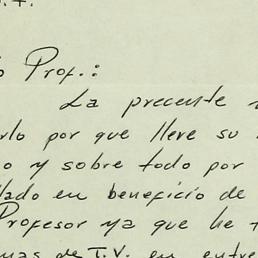 Prof.:
La precente
rlo por que lleve su
o y sobre todo por
llado en beneficio de
Profesor ya que he
mas de T.V. en entre